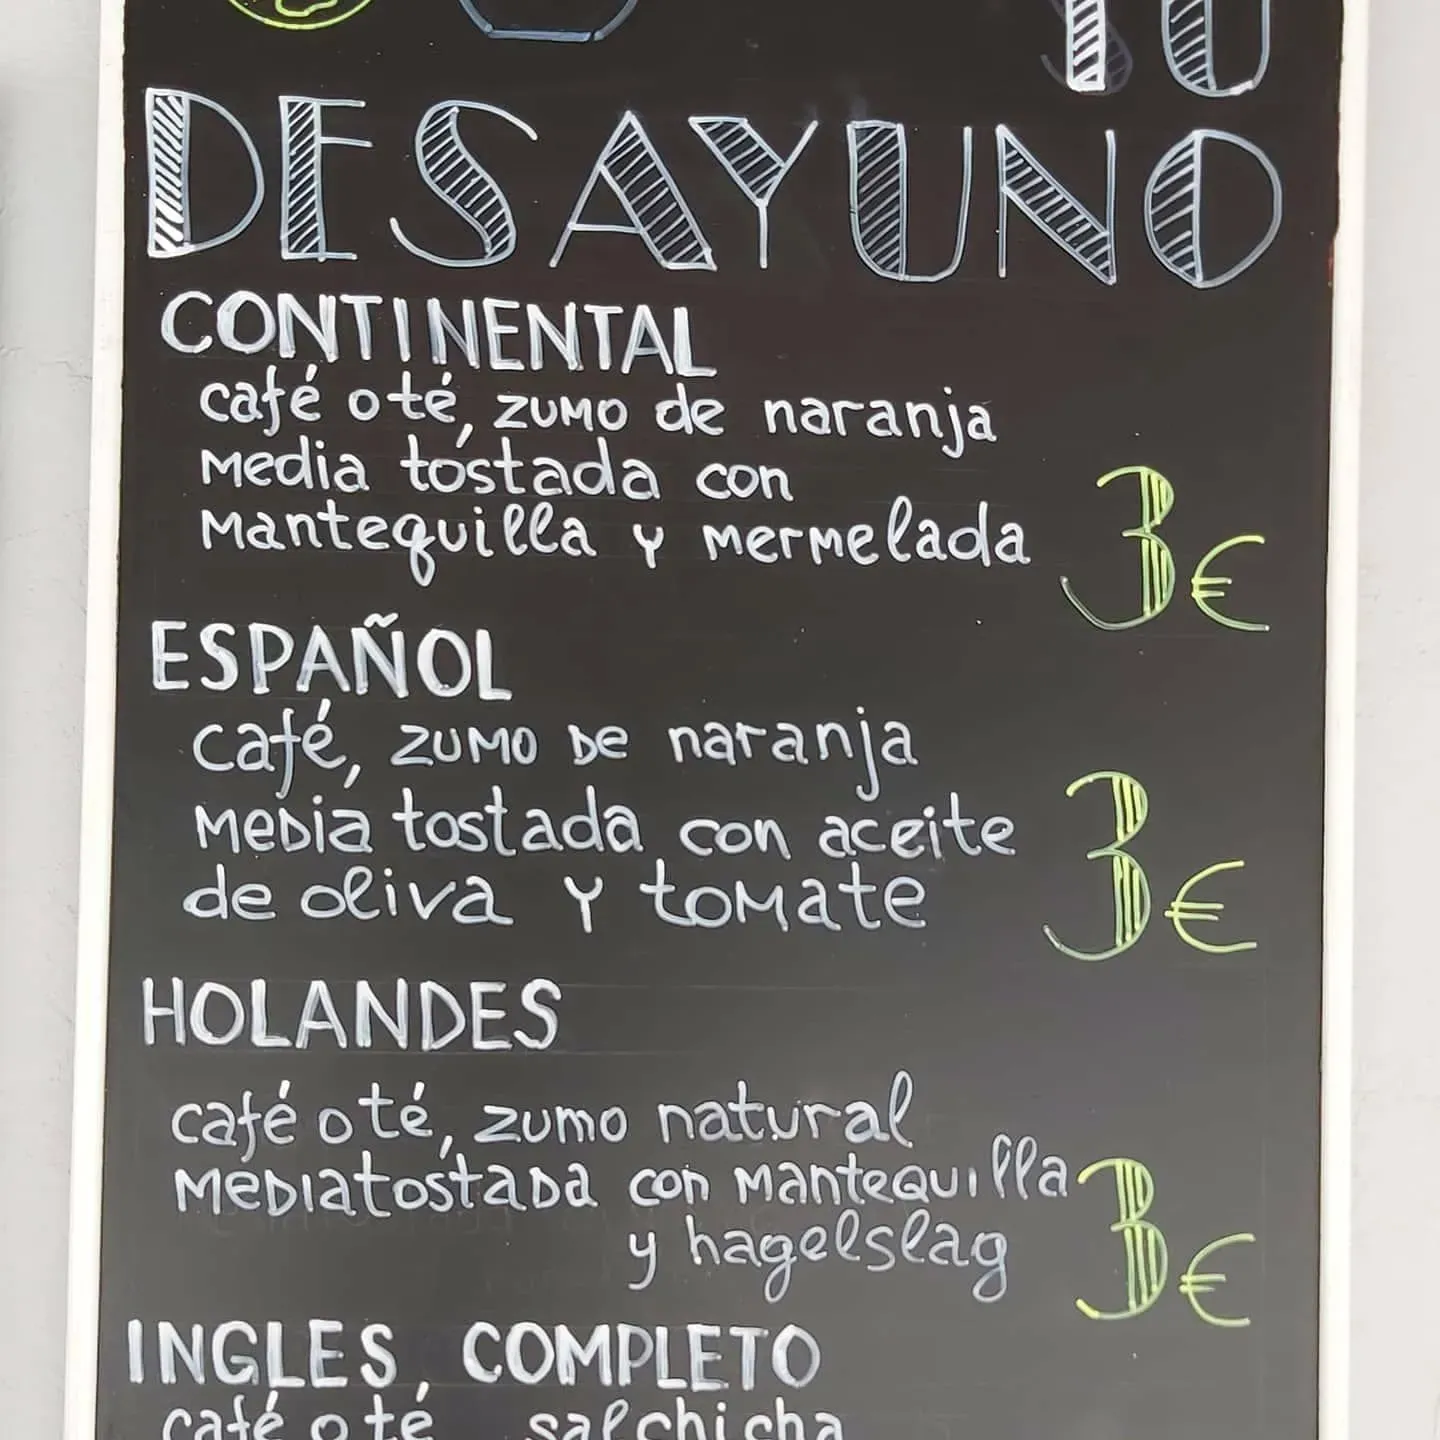 TU
DESAYUNO
CONTINENTAL
café o té, zumo de naranja
media tostada con
mantequilla y mermelada
3€
ESPAÑOL
café, zumo de naranja
media tostada con aceite
de oliva y tomate
3€
HOLANDES
café o té, zumo natural
media tostada con mantequilla
y hagelslag
3€
INGLES COMPLETO
café o té, salchicha